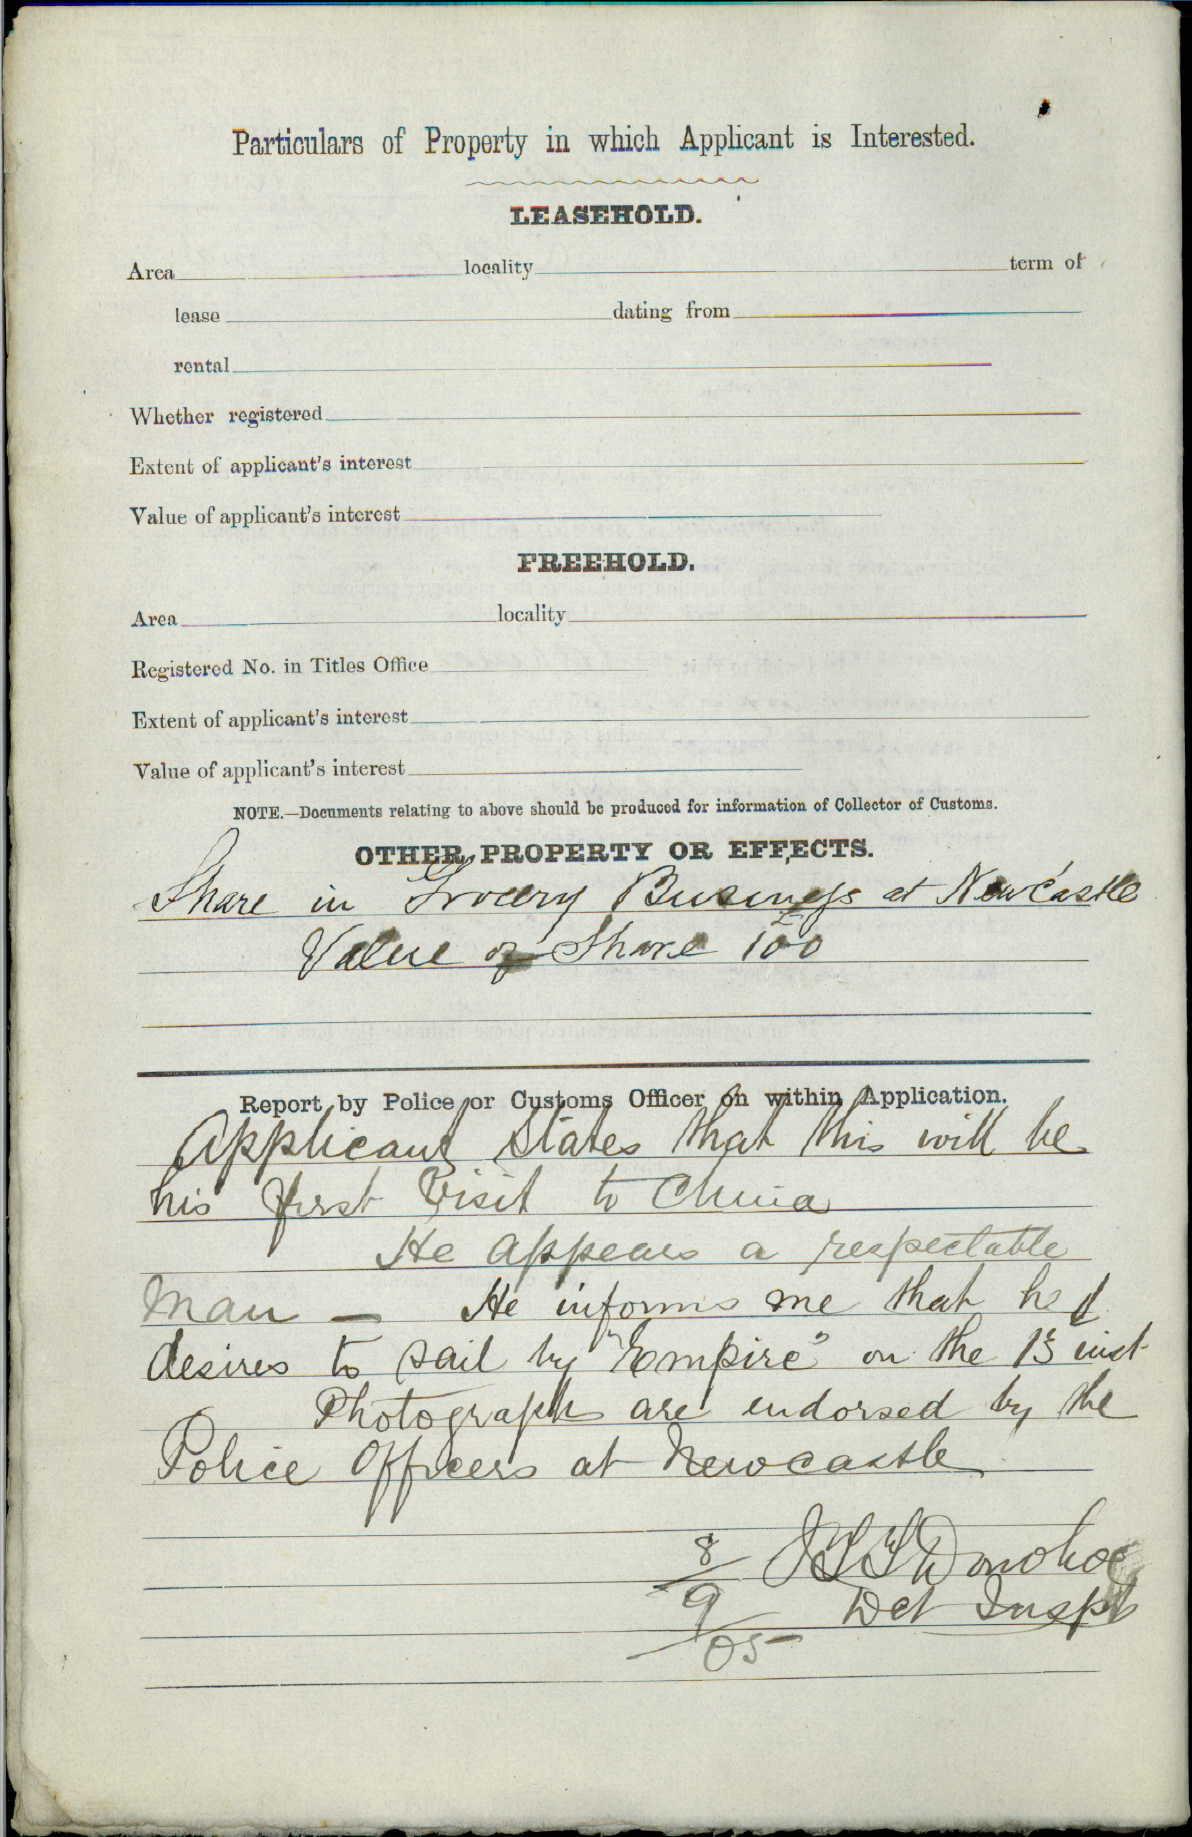 Particulars of Property in which Applicant is Interested.
LEASEHOLD.
Area locality term of
lease dating from
rental
Whether registered
Extent of applicant's interest
Value of applicant's interest
FREEHOLD.
Area locality
Registered No. in Titles Office
Extent of applicant's interest
Value of applicant's interest
NOTE.—Documents relating to above should be produced for information of Collector of Customs.
OTHER PROPERTY OR EFFECTS.
Share in Grocery Business at Newcastle
Value of Share £100
Report by Police or Customs Officer on within Application.
Applicant States that this will be
his first Visit to China
He appears a respectable
Man — He informs me that he
desires to sail by "Empire" on the 13 inst
Photographs are endorsed by the
Police Officers at Newcastle
8/9/05 Donohoe
Det Inspt